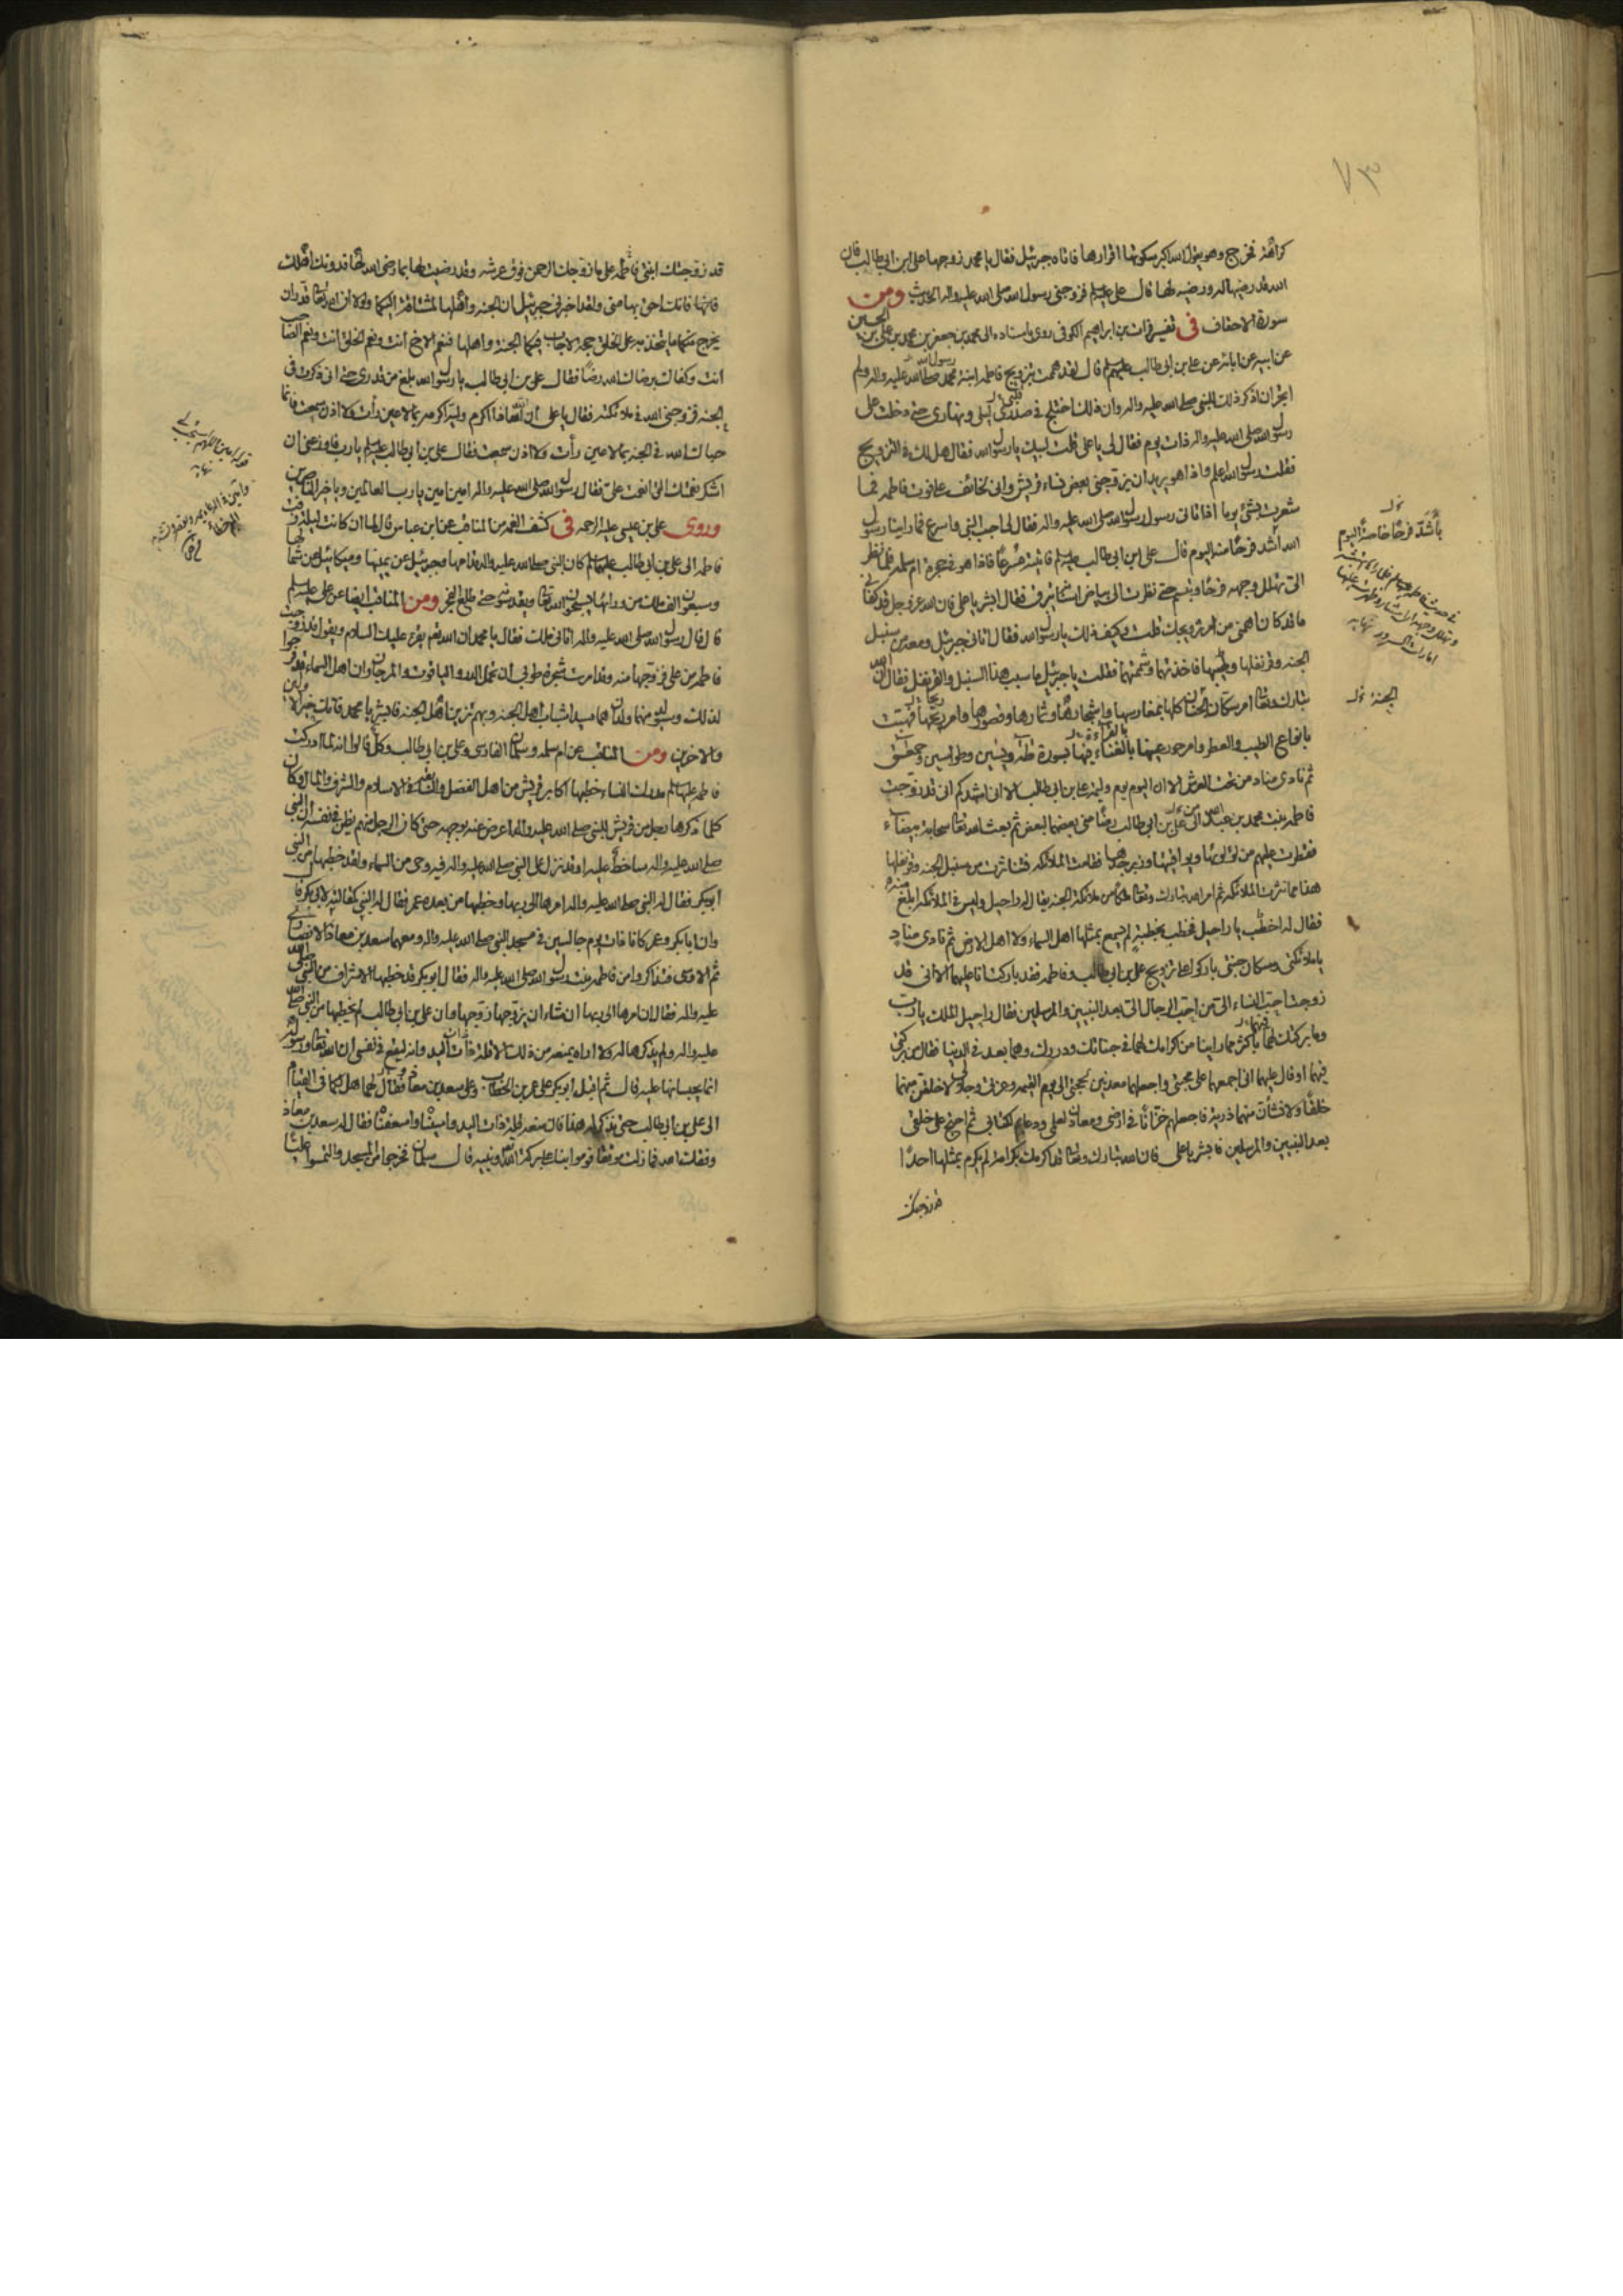 ٧٣
كراهة فخرج وهو يقول الله اكبر سكوتها اقرارها فاتاه جبرئيل فقال يا محمد زوجها علي ابن ابي طالب فان
الله قد رضيها له ورضيه لها قال علي عليه السلم فزوجني رسول الله صلى الله عليه واله الحديث ومن
سورة الاحقاف في تفسير فرات بن ابراهيم الكوفي روى باسناده الى محمد بن جعفر بن محمد بن علي بن الحسين
عن ابيه عن ابائه عن علي بن ابي طالب عليهم السلم قال لقد هممت بتزويج فاطمه ابنة محمد رسول الله صلى الله عليه واله ولم
اجتر ان اذكر ذلك للنبي صلى الله عليه واله وان ذلك اختلج في صدري ليلي ونهاري حتى دخلت على
رسول الله صلى الله عليه واله ذات يوم فقال لي يا علي قلت لبيك يا رسول الله فقال هل لك في التزويج
فقلت رسول الله اعلم واذا هو يريد ان يزوجني بعض نساء قريش واني لخائف على فوت فاطمه فما
شعرت بشئ يوما اذا اتاني رسول رسول الله صلى الله عليه واله فقال لي اجب النبي واسرع فما راينا رسول
الله اشد فرحا منه اليوم قال علي ابن ابي طالب عليه السلم فاتيته مسرعا فاذا هو في حجرة ام سلمه فلما نظر
الي تهلل وجهه فرحا وتبسم حتى نظرت الى بياض اسنانه يبرق فقال ابشر يا علي فان الله عز وجل قد كفاني
ما قد كان اهمني من امر تزويجك قلت وكيف ذلك يا رسول الله فقال اتاني جبرئيل ومعه من سنبل
الجنه وقرنفلها وطيبها فاخذتهما وشممتهما فقلت يا جبرئيل ما سبب هذا السنبل والقرنفل فقال ان الله
تبارك وتعالى امر سكان الجنان كلها بمغارسها واشجارها وثمارها وقصورها وامر ريحها فهبت
بانواع الطيب والعطر وامر حور عينها بالغناء فيها بسورة طه ويس وطواسين وحمعسق
ثم نادى مناد من تحت العرش الا ان اليوم يوم وليمة علي بن ابي طالب الا اني اشهدكم اني قد زوجت
فاطمه بنت محمد بن عبد الله من علي بن ابي طالب رضا مني بعضهما لبعض ثم بعث الله تعالى سحابة بيضاء
فقطرت عليهم من لؤلؤها ويواقيتها وزبرجدها فقامت الملائكه فتناثرت من سنبل الجنه وقرنفلها
هذا مما نثرت الملائكه ثم امر الله تبارك وتعالى ملكا من ملائكة الجنه يقال له راحيل وليس في الملائكه ابلغ منه
فقال له اخطب يا راحيل فخطب بخطبة لم يسمع بمثلها اهل السماء ولا اهل الارض ثم نادى مناد
يا ملائكتي وسكان جنتي باركوا على تزويج علي بن ابي طالب وفاطمه فقد باركت انا عليهما الا اني قد
زوجت احب النساء الي من احب الرجال الي بعد النبيين والمرسلين فقال راحيل الملك يا رب
وما بركتك لهما باكثر مما راينا من كرامك لهما في جنانك ودورك وهما بعد في الدنيا فقال من بركتي
فيهما او قال عليهما اني اجمعهما على محبتي واجعلهما معدنين لحجتي الى يوم القيمه وعزتي وجلالي لاخلقن منهما
خلقا ولانشأن منهما ذرية فاجعلهم خزانا في ارضي ومعادن لعلمي ودعائم لكتابي ثم احتج على خلقي
بعد النبيين والمرسلين فابشر يا علي فان الله تبارك وتعالى قد اكرمك بكرامة لم يكرم بمثلها احدا
قد زوجتك
باشد فرحا خاصة اليوم
الجنة
قد زوجتك ابنتي فاطمه على ما زوجك الرحمن فوق عرشه وقد رضيت لها بما رضي الله لها فدونك اهلك
فانها فانت احق بها مني ولقد اخبرني جبرئيل ان الجنه واهلها لمشتاقة اليكما ولولا ان الله تعالى قدر ان
يخرج منكما ما يتخذ به على الخلق حجه لاجاب فيكما الجنه واهلها فنعم الاخ انت ونعم الختن انت ونعم الصاحب
انت وكفاك برضا الله رضا فقال علي بن ابي طالب يا رسول الله بلغ من قدري حتى اني ذكرت في
الجنه فزوجني الله في ملائكته فقال يا علي ان الله تعالى اذا اكرم وليه اكرمه بما لا عين رأت ولا اذن سمعت فانما
حباك الله في الجنه بما لا عين رأت ولا اذن سمعت فقال علي بن ابي طالب عليه السلم يا رب اوزعني ان
اشكر نعمتك التي انعمت علي فقال رسول الله صلى الله عليه واله امين امين يا رب العالمين ويا خير الناصرين
وروى علي بن عيسى عليه الرحمه في كشف الغمه من المناقب عن ابن عباس قال لما ان كانت ليلة زفت
فاطمه الى علي بن ابي طالب عليهما السلم كان النبي صلى الله عليه واله قدامها وجبرئيل عن يمينها وميكائيل عن شمالها
وسبعون الف ملك من ورائها يسبحون الله تعالى ويقدسونه حتى طلع الفجر ومن المناقب ايضا عن علي عليه السلم
قال قال رسول الله صلى الله عليه واله اتاني ملك فقال يا محمد ان الله تعالى يقرء عليك السلام ويقول قد زوجت
فاطمه من علي فزوجها منه وقد امرت شجرة طوبى ان تحمل الدر والياقوت والمرجان وان اهل السماء قد فرحوا
لذلك وسيولد منهما ولدان هما سيدا شباب اهل الجنه وبهم تزين اهل الجنه فابشر يا محمد فانك خير الاولين
والاخرين ومن المناقب عن ام سلمه وسلمان الفارسي وعلي بن ابي طالب وكل قالوا انه لما ادركت
فاطمه عليها السلم مدرك النساء خطبها اكابر قريش من اهل الفضل والسابقة في الاسلام والشرف والمال وكان
كلما ذكرها رجل من قريش للنبي صلى الله عليه واله اعرض عنه بوجهه حتى كان الرجل منهم يظن في نفسه ان النبي
صلى الله عليه واله ساخط عليه او قد نزل على النبي صلى الله عليه واله فيه وحي من السماء ولقد خطبها من النبي
ابوبكر فقال له النبي صلى الله عليه واله امرها الى ربها وخطبها من بعده عمر فقال له النبي كمقالته لابي بكر
وان ابا بكر وعمر كانا ذات يوم جالسين في مسجد النبي صلى الله عليه واله ومعهما سعد بن معاذ الانصاري
ثم الاوسي فتذاكروا من فاطمه بنت رسول الله صلى الله عليه واله فقال ابوبكر قد خطبها الاشراف من النبي صلى الله
عليه واله فقال ان امرها الى ربها ان شاء ان يزوجها زوجها وان علي بن ابي طالب لم يخطبها من النبي صلى الله
عليه واله ولم يذكرها له ولا اراه يمنعه من ذلك الا قلة ذات اليد وانه ليقع في نفسي ان الله تعالى ورسوله
انما يحبسانها عليه قال ثم اقبل ابوبكر على عمر بن الخطاب وعلى سعد بن معاذ فقال لهما هل لكما في القيام
الى علي بن ابي طالب حتى نذكر له هذا فان منعه قلة ذات اليد واسيناه واسعفناه فقال له سعد بن معاذ
وفقك الله فما زلت موفقا قوموا بنا على بركة الله ويمنه قال سلمان فخرجوا من المسجد والتمسوا عليا